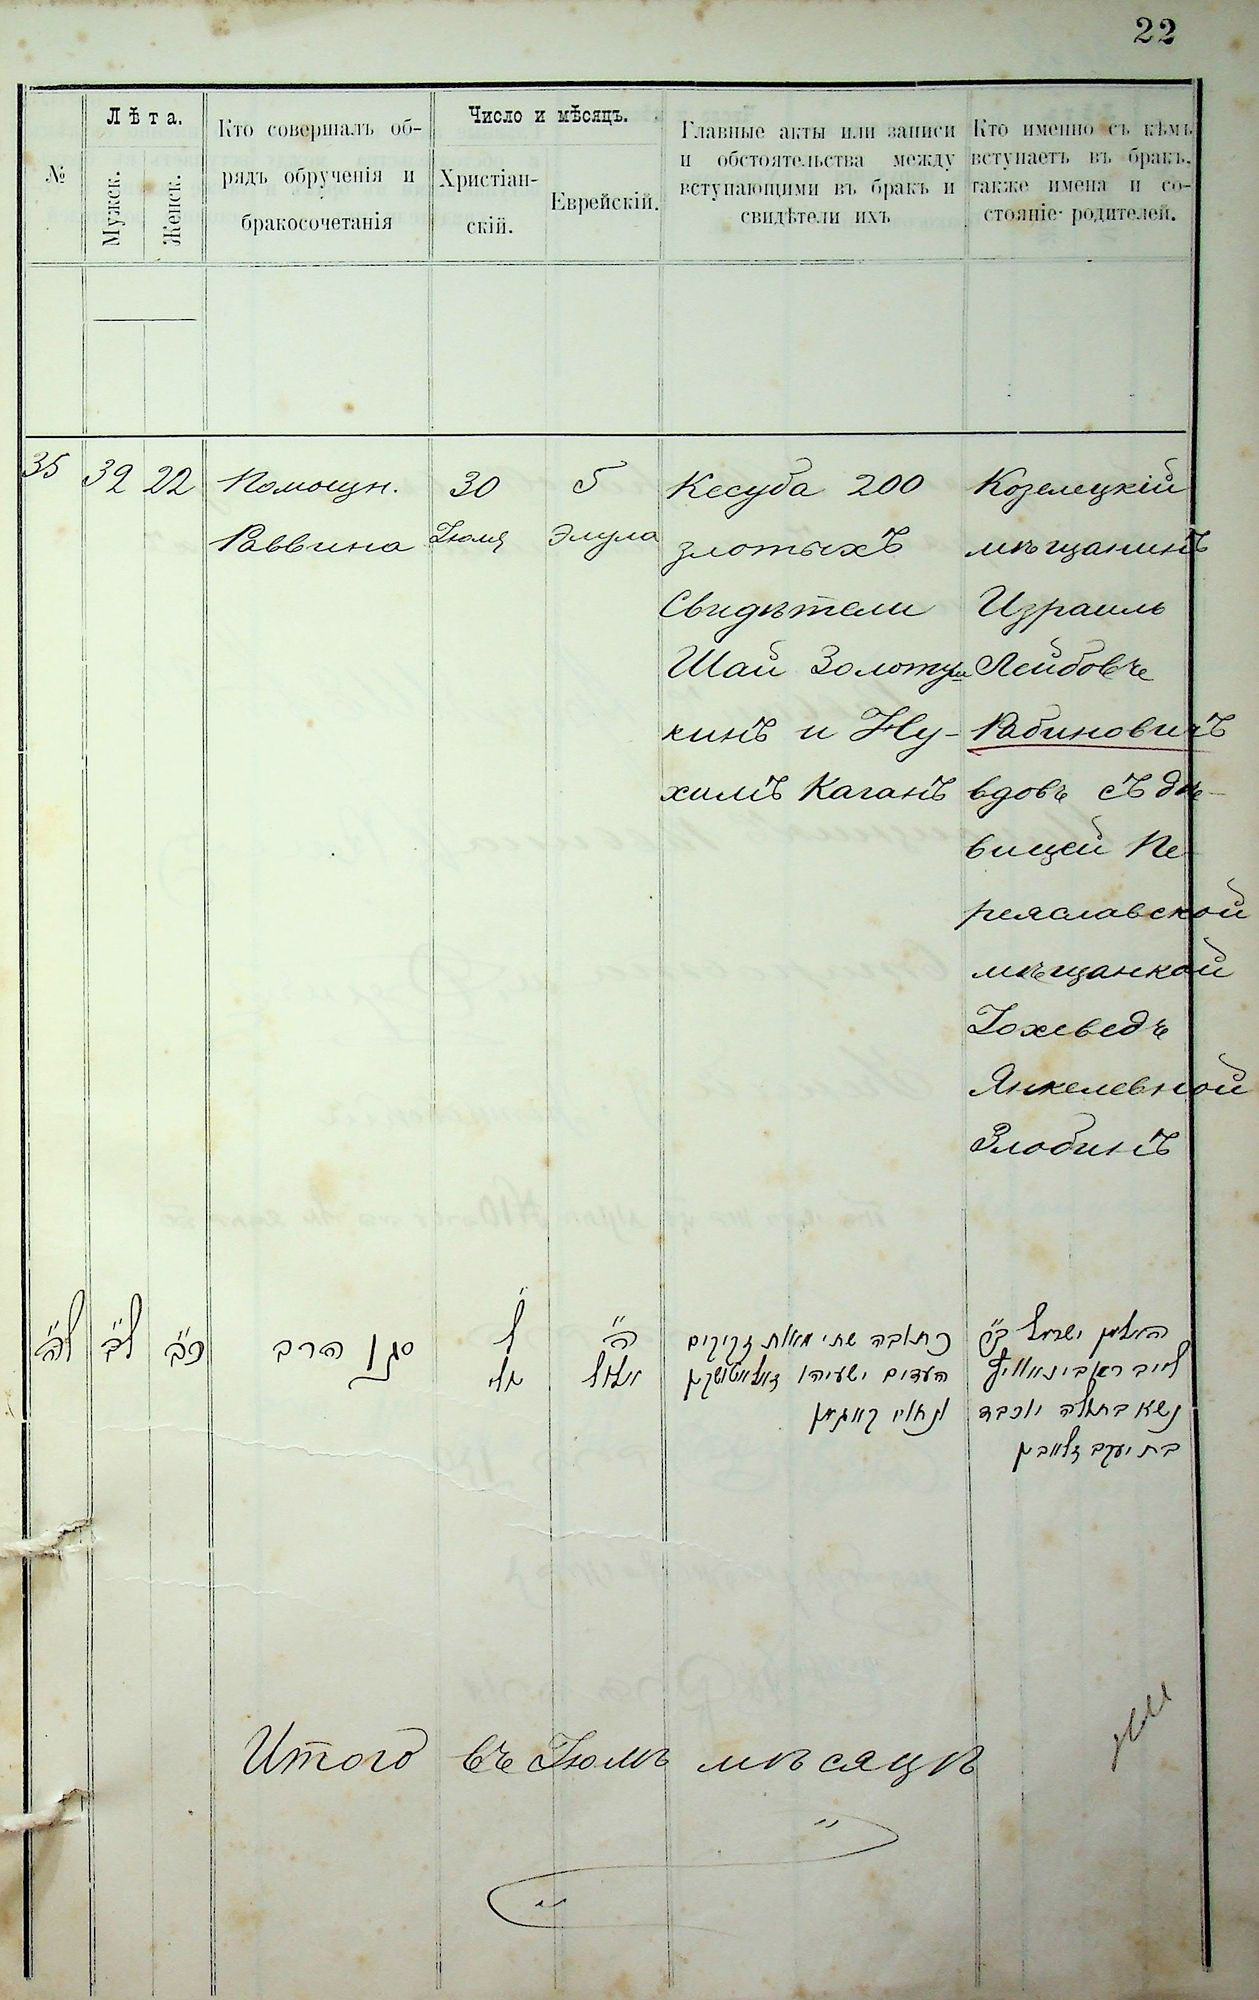 22
№
Лѣта.
Мужск.
Женск.
Кто совершалъ об-
рядъ обрученія и
бракосочетанія
Число и мѣсяцъ.
Христіан-
скій.
Еврейскій.
Главные акты или записи
и обстоятельства между
вступающими въ бракъ и
свидѣтели ихъ
Кто именно съ кѣмъ
вступаетъ въ бракъ,
также имена и со-
стояніе родителей.
35
32
22
Помощн.
Раввина
30
Іюля
5
Элула
Кесуба 200
злотыхъ
Свидѣтели
Шая Золоту
кинъ и Ну-
химъ Каганъ
Козелецкій
мѣщанинъ
Израиль
Лейбовъ
Рабиновичъ
вдовъ съ дѣ-
вицей Пе-
реяславской
мѣщанкой
Іохеведъ
Янкелевной
Злобинъ
ל״ה
ל״ב
כ״ב
סגן הרב
ל״
יולי
ה״
אלול
כתובה שתי מאות זקוקים
העדים ישעיהו
נחום קאגאן
האלמן ישראל ב״ר
לייב ראבינאוויץ
נשא בתולה יוכבד
בת יעקב זלאבין
Итого въ Іюлѣ мѣсяцѣ